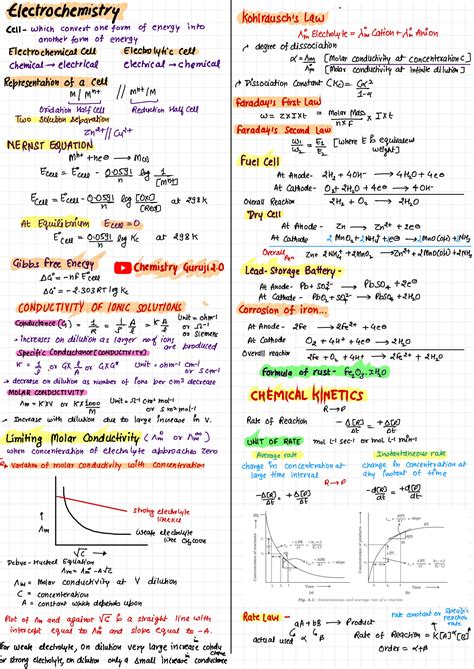 Electrochemistry
Cell - which convert one form of energy into
another form of energy
Electrochemical Cell    Electrolytic cell
Chemical → electrical    electrical → chemical
Representation of a cell
M / Mⁿ⁺ // Mⁿ⁺ / M
Oxidation Half Cell    Reduction Half Cell
Two solution separation
Zn²⁺ || Cu²⁺
NERNST EQUATION
Mⁿ⁺ + ne⊖ → M(s)
Ecell = E°cell - 0.0591/n log 1/[Mⁿ⁺]
Ecell = E°cell - 0.0591/n log [OxO]/[Red] at 298 K
At Equilibrium Ecell = 0
E°cell = 0.0591/n log Kc at 298 K
Gibbs Free Energy
Chemistry Guruji 2.0
ΔG° = -nFE°cell
ΔG° = -2.303RT log Kc
CONDUCTIVITY OF IONIC SOLUTIONS
Conductance (G) = 1/R = 1/ρ A/l = K A/l
Unit = ohm⁻¹
or Ω⁻¹
or Siemens
→ increases on dilution as larger no of ions
are produced
Specific Conductance (CONDUCTIVITY)
K = 1/ρ or G×l/A or G×G* Unit = ohm⁻¹ cm⁻¹
or S cm⁻¹
→ decrease on dilution as number of ions per cm³ decrease
MOLAR CONDUCTIVITY
Λm = K×V or K×1000/M Unit = Ω⁻¹ cm² mol⁻¹
or S m² mol⁻¹
- Increase with dilution due to large increase in V.
Limiting Molar Conductivity (Λ°m or Λ∞m)
when concentration of electrolyte approaches zero
Variation of molar conductivity with concentration
strong electrolyte
like KCl
Λm
weak electrolyte
like CH₃COOH
√C →
Debye-Huckel Equation
Λm = Λ°m - A√C
Λm = Molar conductivity at V dilution
C = concentration
A = constant which depends upon
Plot of Λm and against √C is a straight line with
intercept equal to Λ°m and slope equal to -A.
For weak electrolyte, on dilution very large increase condu
for strong electrolyte, on dilution only a small increase in conductance
Kohlrausch's Law
Λ°m Electrolyte = λ°m Cation + λ°m Anion
degree of dissociation
α = Λm/Λ°m [Molar conductivity at concentration C]
[Molar conductivity at infinite dilution]
Dissociation Constant (Kc) = Cα²/1-α
Faraday's First Law
w = Z×I×t = Molar Mass/n×F × I×t
Faraday's Second Law
w₁/w₂ = E₁/E₂ [Where E is equivalent
weight]
Fuel Cell
At Anode - 2H₂ + 4OH⁻ → 4H₂O + 4e⊖
At Cathode - O₂ + 2H₂O + 4e⊖ → 4OH⁻
Overall Reaction 2H₂ + O₂ → 2H₂O
Dry Cell
At Anode - Zn → Zn²⁺ + 2e⊖
At Cathode 2MnO₂ + 2NH₄⁺ + 2e⊖ → 2MnO(OH) + 2NH₃
Overall Rxn Zn + 2NH₄⁺ + 2MnO₂ → Zn²⁺ + 2MnO(OH) + 2NH₃
Lead-Storage Battery -
At Anode - Pb + SO₄²⁻ → PbSO₄ + 2e⊖
At Cathode - PbO₂ + SO₄²⁻ → PbSO₄ + 2H₂O
Corrosion of iron...
At Anode - 2Fe → 2Fe²⁺ + 4e⊖
At Cathode O₂ + 4H⁺ + 4e⊖ → 2H₂O
Overall reaction 2Fe + O₂ + 4H⁺ → 2Fe²⁺ + 2H₂O
Formula of rust - Fe₂O₃.xH₂O
CHEMICAL KINETICS
R → P
Rate of Reaction = -Δ[R]/Δt = +Δ[P]/Δt
UNIT OF RATE mol L⁻¹ sec⁻¹ or mol L⁻¹ min⁻¹
Average rate    Instantaneous rate
change in concentration at    change in concentration at
large time interval    any instant of time
R → P
-Δ[R]/Δt = +Δ[P]/Δt    -d[R]/dt = +d[P]/dt
Rate Law -
aA + bB → Product
actual used α β
rate constant or specific
reaction rate
Rate of Reaction = K[A]^α[B]^β
Order = α+β